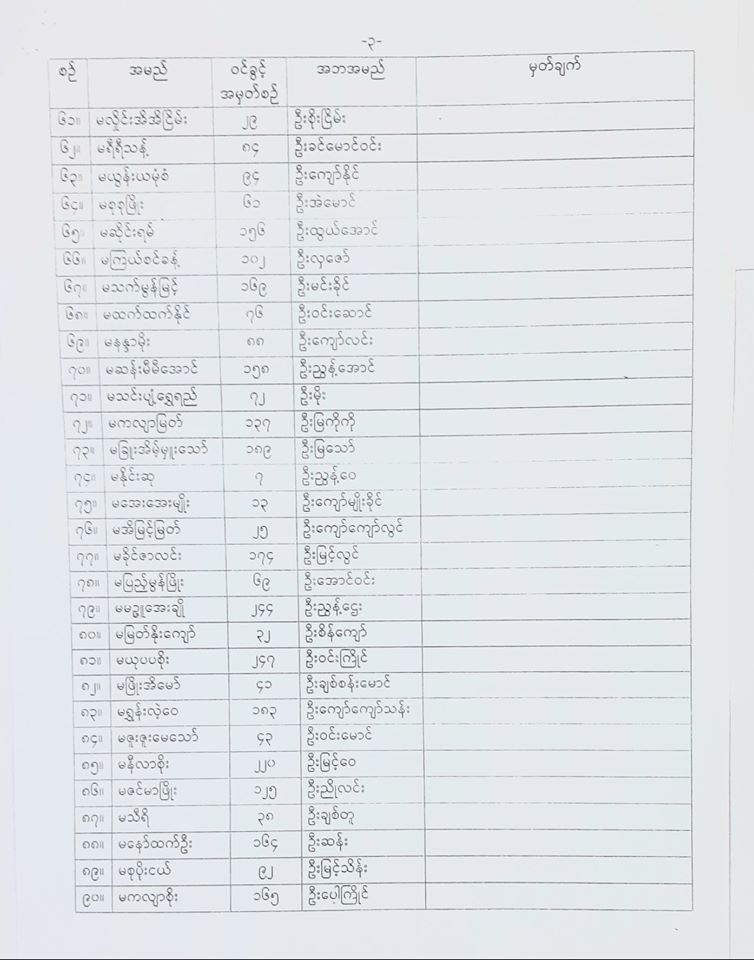 -၃-
စဉ် အမည် ဝင်ခွင့် အမှတ်စဉ် အဘအမည် မှတ်ချက်
၆၁။ မလှိုင်းအိအိငြိမ်း ၂၉ ဦးစိုးငြိမ်း
၆၂။ မရီရီသန့် ၈၄ ဦးခင်မောင်ဝင်း
၆၃။ မယွန်းယမုံစံ ၉၄ ဦးကျော်နိုင်
၆၄။ မစုစုဖြိုး ၆၁ ဦးအဲမောင်
၆၅။ မဆိုင်းရမ် ၁၅၆ ဦးထွယ်အောင်
၆၆။ မကြယ်စင်ခန့် ၁၀၂ ဦးလှဇော်
၆၇။ မသက်မွန်မြင့် ၁၆၉ ဦးမင်းခိုင်
၆၈။ မထက်ထက်နိုင် ၇၆ ဦးဝင်းဆောင်
၆၉။ မနန္ဒာမိုး ၈၈ ဦးကျော်လင်း
၇၀။ မဆန်းမီမီအောင် ၁၅၈ ဦးညွန့်အောင်
၇၁။ မသင်းပျံ့ရွှေရည် ၇၂ ဦးမိုး
၇၂။ မကလျာမြတ် ၁၃၇ ဦးမြကိုကို
၇၃။ မခြူးအိမ့်မှူးသော် ၁၈၉ ဦးမြသော်
၇၄။ မနှိုင်းဆု ၇ ဦးညွန့်ဝေ
၇၅။ မအေးအေးမျိုး ၁၃ ဦးကျော်မျိုးခိုင်
၇၆။ မအိမြင့်မြတ် ၂၅ ဦးကျော်ကျော်လွင်
၇၇။ မခိုင်ဇာလင်း ၁၇၄ ဦးမြင့်လွင်
၇၈။ မပြည့်မွန်ဖြိုး ၆၉ ဦးအောင်ဝင်း
၇၉။ မမဥူအေးချို ၂၄၄ ဦးညွန့်ဌေး
၈၀။ မမြတ်နိုးကျော် ၃၂ ဦးစိန်ကျော်
၈၁။ မယုပပစိုး ၂၄၇ ဦးဝင်းကြိုင်
၈၂။ မဖြိုးအိမော် ၄၁ ဦးချစ်စန်းမောင်
၈၃။ မရွှန်းလဲ့ဝေ ၁၈၃ ဦးကျော်ကျော်သန်း
၈၄။ မဇူးဇူးမေသော် ၄၃ ဦးဝင်းမောင်
၈၅။ မနီလာစိုး ၂၂၀ ဦးမြင့်ဝေ
၈၆။ မဇင်မာဖြိုး ၁၂၅ ဦးညိုလင်း
၈၇။ မသီရိ ၃၈ ဦးချစ်တူ
၈၈။ မနော်ထက်ဦး ၁၆၄ ဦးဆန်း
၈၉။ မစုပိုးငယ် ၉၂ ဦးမြင့်သိန်း
၉၀။ မကလျာစိုး ၁၆၅ ဦးပေါ့ကြိုင်